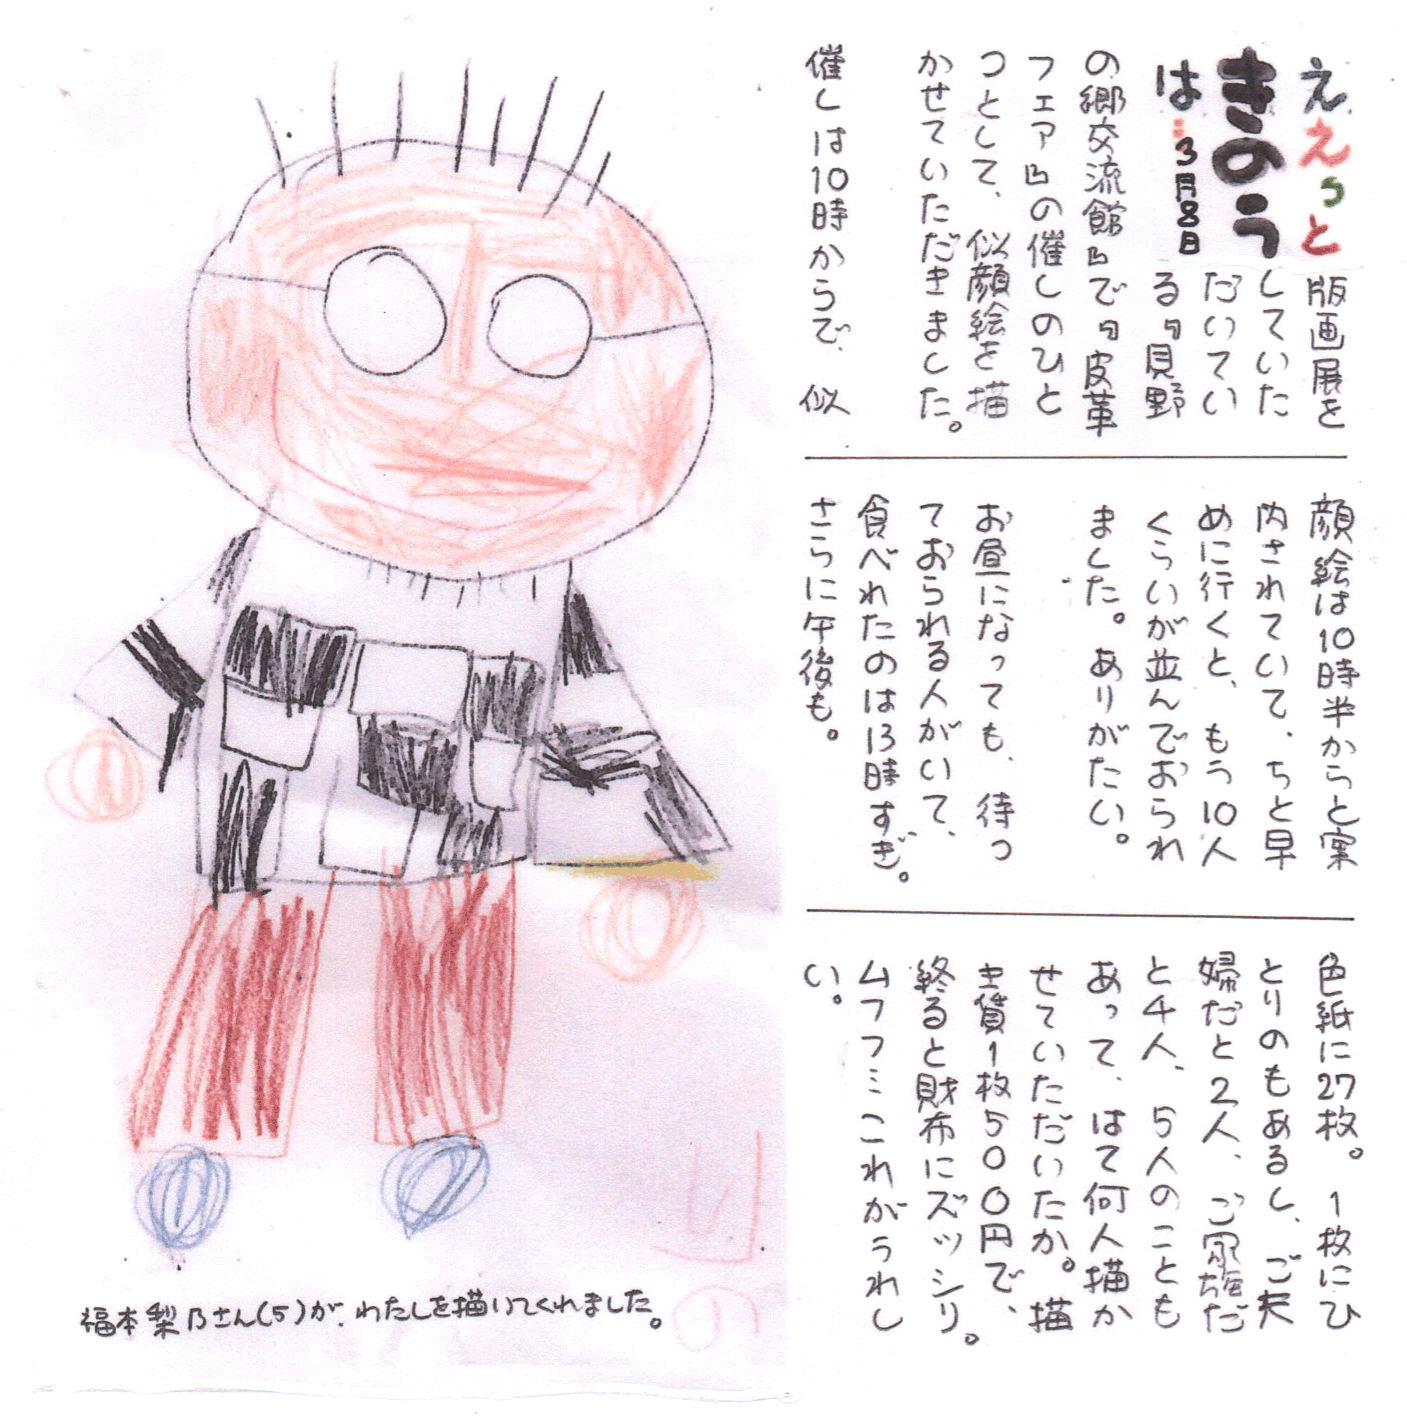 ええっと
きのう
は…3月8日
版画展を
していた
だいてい
る『貝野
の郷交流館』で『皮革
フェア』の催しのひと
つとして、似顔絵を描
かせていただきました。
催しは10時からで、似
顔絵は10時半からと案
内されていて、ちと早
めに行くと、もう10人
くらいが並んでおられ
ました。ありがたい。
お昼になっても、待っ
ておられる人がいて、
食べれたのは13時すぎ。
さらに午後も。
色紙に27枚。1枚にひ
とりのもあるし、ご夫
婦だと2人、ご家族だ
と4人、5人のことも
あって、はて何人描か
せていただいたか。描
き賃1枚500円で、
終ると財布にズッシリ。
ムフフミこれがうれし
い。
福本梨乃さん(5)が、わたしを描いてくれました。